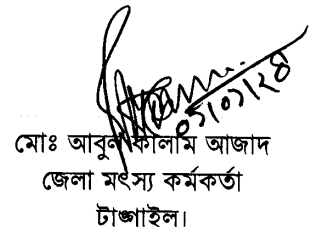 ০১/০১/২৪
মোঃ আবুল কালাম আজাদ
জেলা মৎস্য কর্মকর্তা
টাঙ্গাইল।